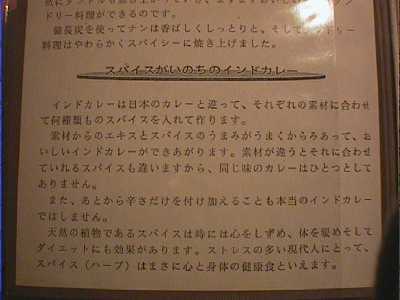 ドリー料理ができるのです。
備長炭を使ってナンは香ばしくしっとりと、そして
料理はやわらかくスパイシーに焼き上げました。
スパイスがいのちのインドカレー
インドカレーは日本のカレーと違って、それぞれの素材に合わせ
て何種類ものスパイスを入れて作ります。
素材からのエキスとスパイスのうまみがうまくからみあって、お
いしいインドカレーができあがります。素材が違うとそれに合わせ
ていれるスパイスも違いますから、同じ味のカレーはひとつとして
ありません。
また、あとから辛さだけを付け加えることも本当のインドカレー
ではしません。
天然の植物であるスパイスは時には心をしずめ、体を暖めそして
ダイエットにも効果があります。ストレスの多い現代人にとって、
スパイス（ハーブ）はまさに心と身体の健康食といえます。